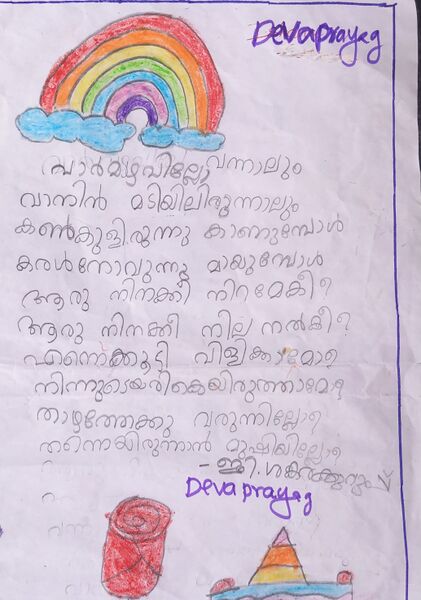 Devaprayag
വാർമഴവില്ലേ വന്നാലും
വാനിൻ മടിയിലിരുന്നാലും
കൺകുളിരുന്നു കാണുമ്പോൾ
കരൾനോവുന്നു മായുമ്പോൾ
ആരു നിനക്കീ നിറമേകീ?
ആരു നിനക്കീ നില നൽകീ?
എന്നെക്കൂടി വിളിക്കാമോ?
നിന്നുടെയരികെയിരുത്താമോ?
താഴത്തേക്കു വരുന്നില്ലേ?
തന്നെയിരുന്നാൽ മുഷിയില്ലേ?
- ജി. ശങ്കരക്കുറുപ്പ്
Devaprayag